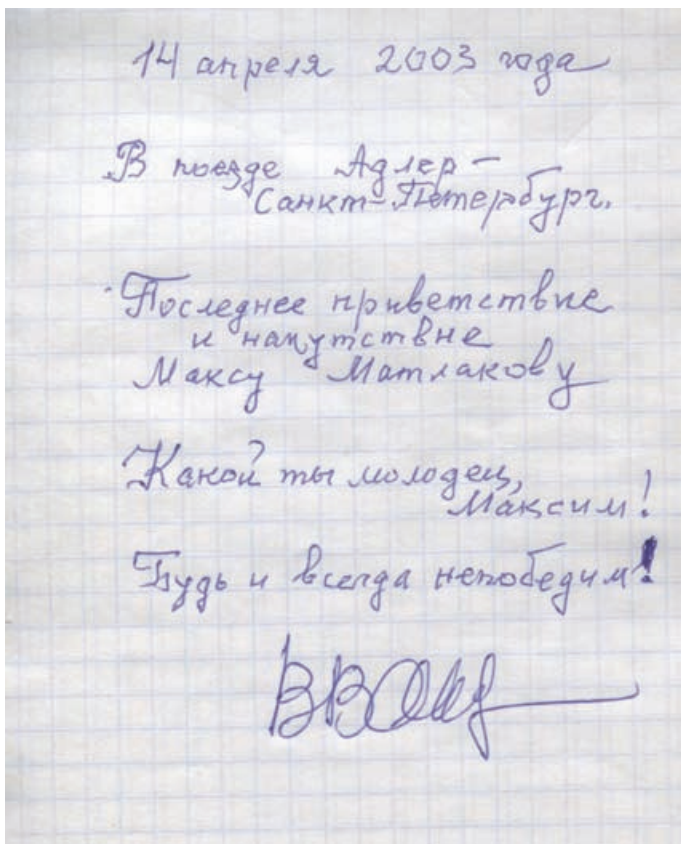 14 апреля 2003 года
В поезде Адлер –
Санкт-Петербург.
Последнее приветствие
и напутствие
Максу Матлакову
Какой ты молодец,
Максим!
Будь и всегда непобедим!